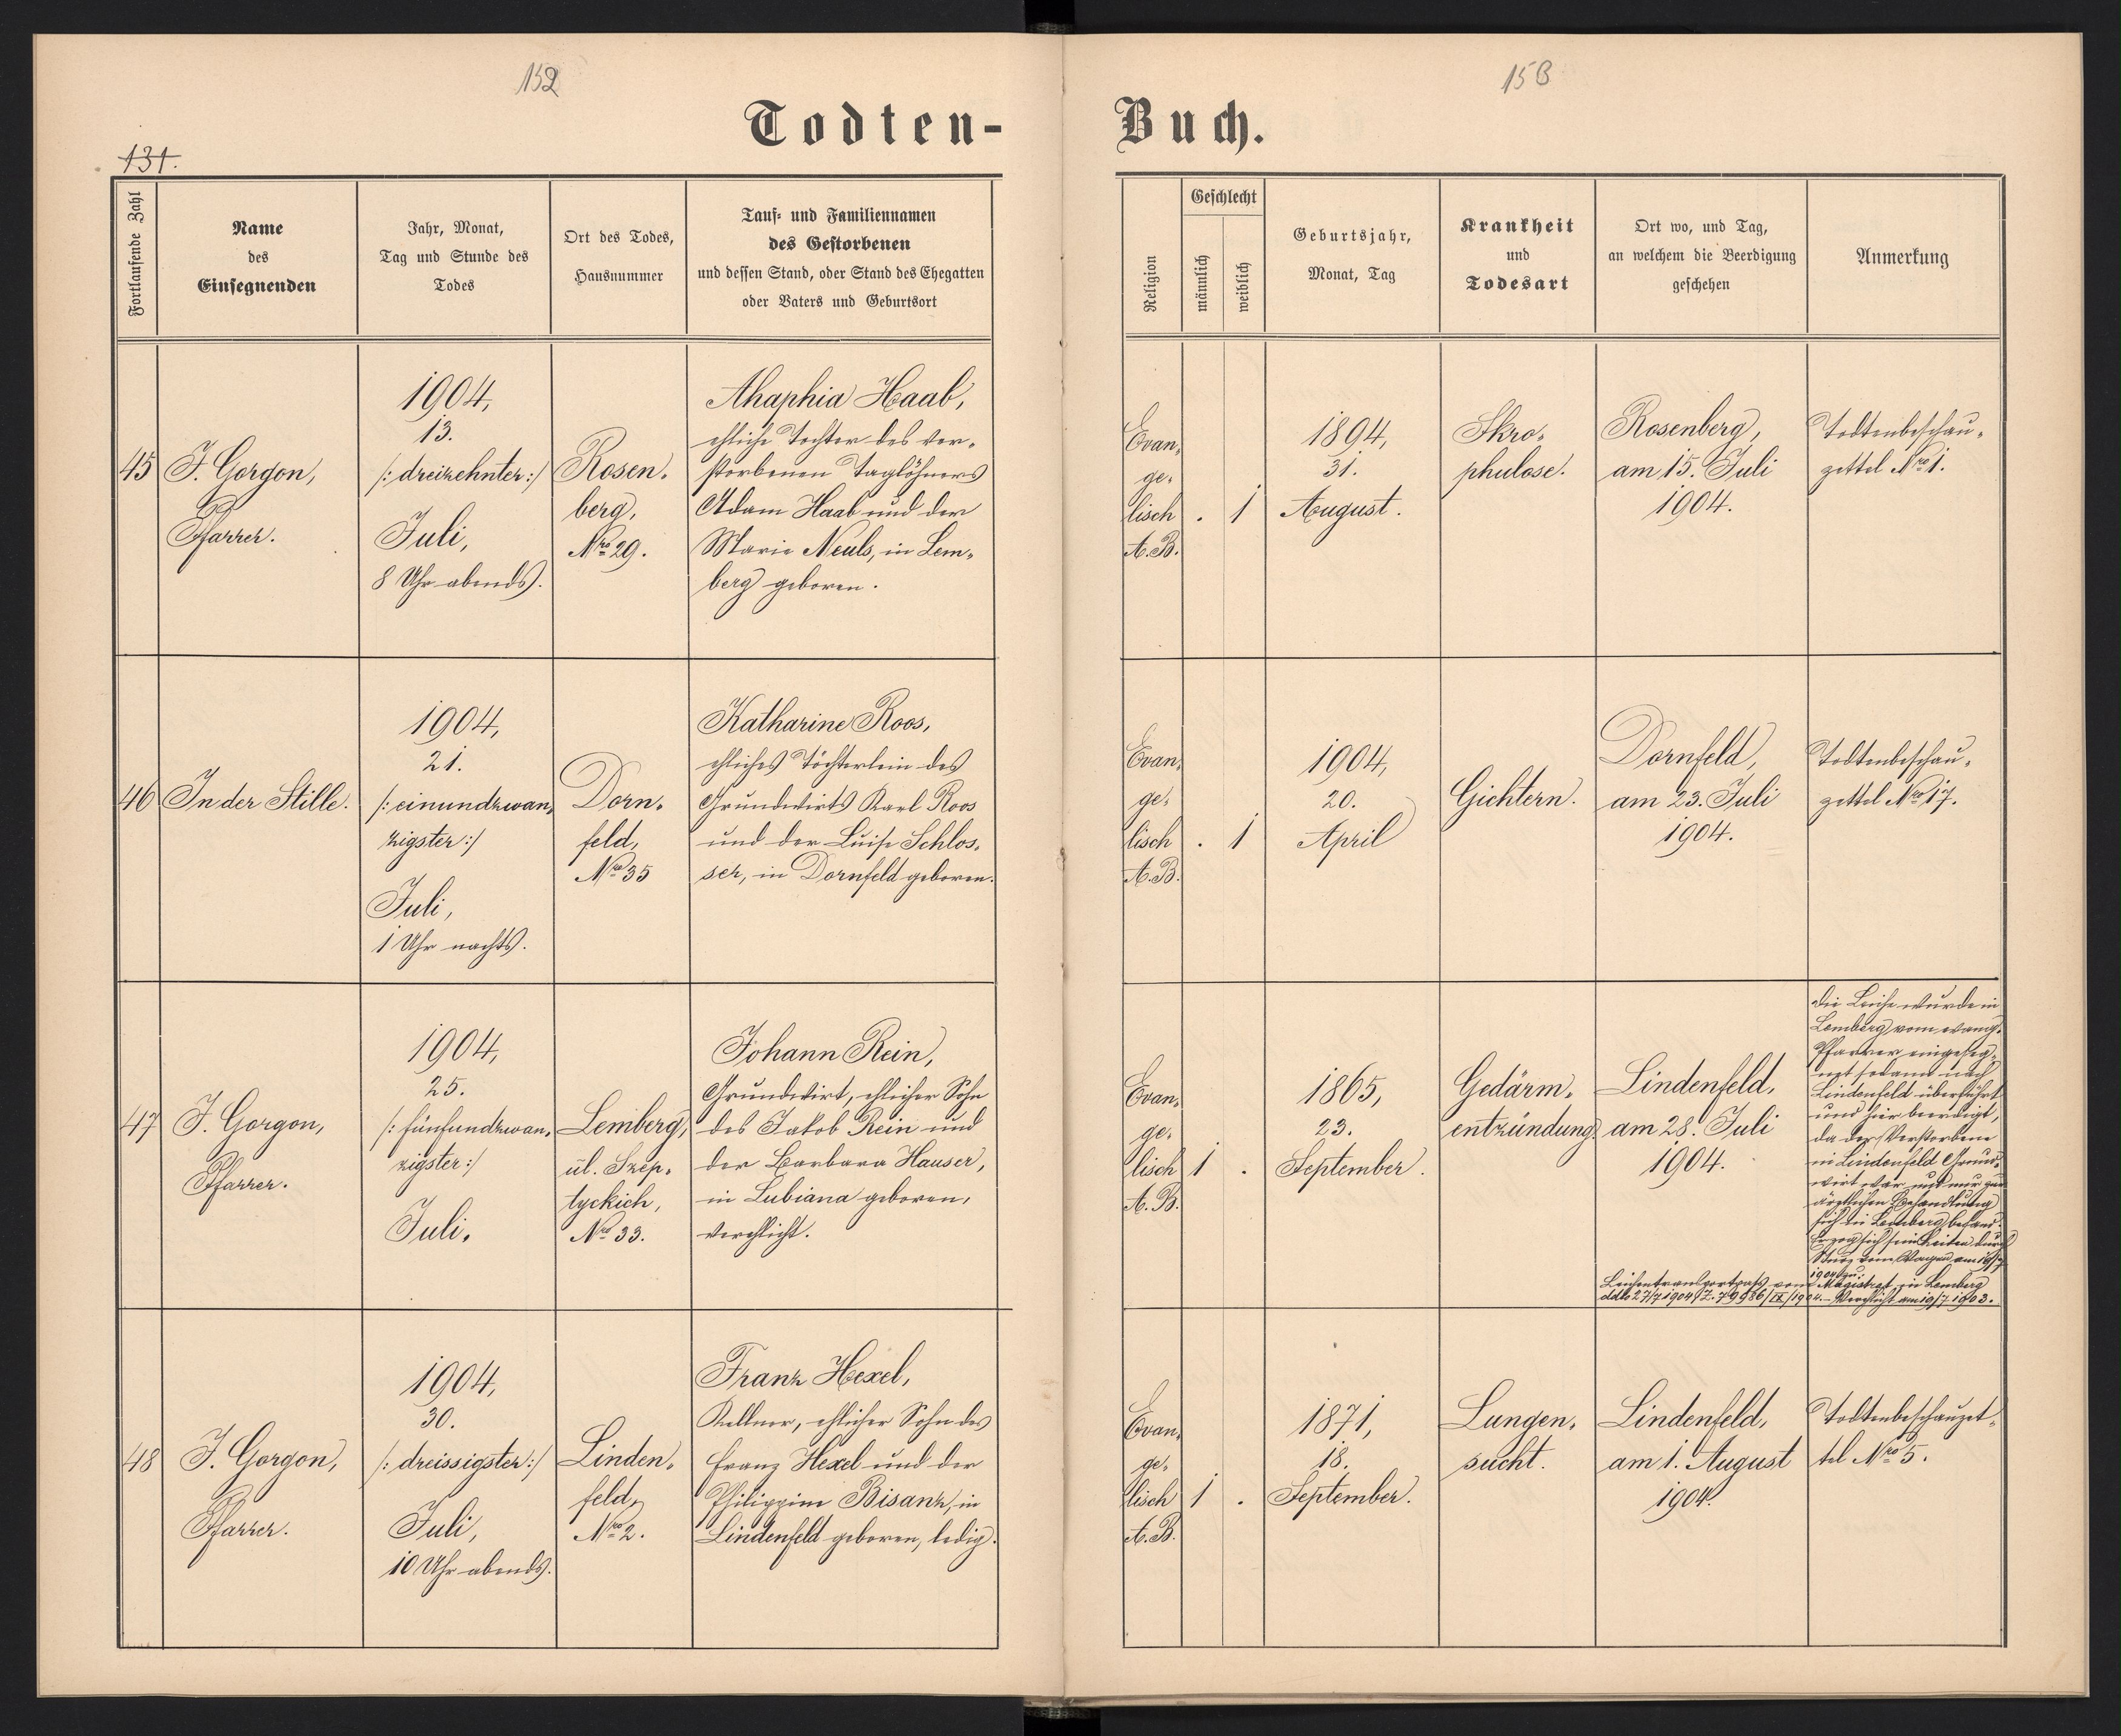 152
153
Todten-
Buch.
131.
Fortlaufende Zahl
Name
des
Einsegnenden
Jahr, Monat,
Tag und Stunde des
Todes
Ort des Todes,
Hausnummer
Tauf- und Familiennamen
des Gestorbenen
und dessen Stand, oder Stand des Ehegatten
oder Vaters und Geburtsort
Religion
Geschlecht
männlich
weiblich
Geburtsjahr,
Monat, Tag
Krankheit
und
Todesart
Ort wo, und Tag,
an welchem die Beerdigung
geschehen
Anmerkung
45
J. Gorgon,
Pfarrer.
1904,
13.
/: dreizehnter :/
Juli,
8 Uhr abends.
Rosen-
berg,
Nro 29.
Ahaphia Haab,
ehliche Tochter des ver-
storbenen Taglöhners
Adam Haab und der
Marie Neuls, in Lem-
berg geboren.
Evan-
ge-
lisch
A.B.
. 1
1894,
31.
August.
Skro-
phulose.
Rosenberg,
am 15. Juli
1904.
Todtenbeschau-
zettel Nro 1.
46
In der Stille.
1904,
21.
/: einundzwan-
zigster :/
Juli,
1 Uhr nachts.
Dorn-
feld,
Nro 35
Katharine Roos,
ehliches Töchterlein des
Grundwirts Karl Roos
und der Luise Schlos-
ser, in Dornfeld geboren.
Evan-
ge-
lisch
A.B.
. 1
1904,
20.
April
Gichtern.
Dornfeld,
am 23. Juli
1904.
Todtenbeschau-
zettel Nro 17.
47
J. Gorgon,
Pfarrer.
1904,
25.
/: fünfundzwan-
zigster :/
Juli.
Lemberg,
ul. Szep-
tyckich,
Nro 33.
Johann Rein,
Grundwirt, ehlicher Sohn
des Jakob Rein und
der Barbara Hauser,
in Lubiana geboren,
verehlicht.
Evan-
ge-
lisch
A.B.
1 .
1865,
23.
September.
Gedärm-
entzündung.
Lindenfeld,
am 28. Juli
1904.
Die Leiche wurde in
Lemberg vom evang.
Pfarrer eingeseg-
net sodann nach
Lindenfeld überführt
und hier beerdigt,
da der Verstorbene
in Lindenfeld Grund-
wirt war und nur zur
ärztlichen Behandlung
sich in Lemberg befand.
Er zog sich sein Leiden durch
Sturz vom Wagen am 19/7
1904 zu.
Leichentransportpass vom Magistrat in Lemberg
ddto 27/7 1904 Z. 79986/IX/1904. – Verehlicht am 19/7 1903.
48
J. Gorgon,
Pfarrer.
1904,
30.
/: dreissigster :/
Juli,
10 Uhr abends.
Linden-
feld,
Nro 2.
Franz Hexel,
Kellner, ehlicher Sohn des
Franz Hexel und der
Philippine Bisanz, in
Lindenfeld geboren, ledig.
Evan-
ge-
lisch
A.B.
1 .
1871,
18.
September.
Lungen-
sucht.
Lindenfeld,
am 1. August
1904.
Todtenbeschauzet-
tel Nro 5.